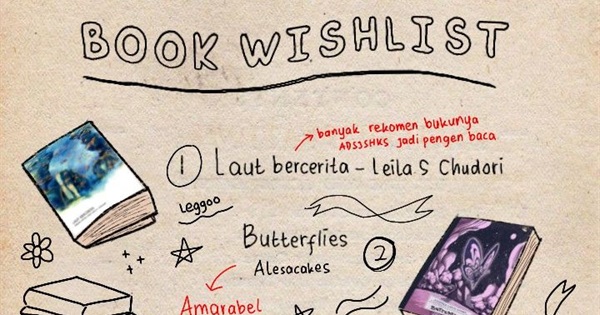 BOOK WISHLIST
banyak rekomen bukunya
ADSJSHKS jadi pengen baca
1 Laut bercerita - Leila S Chudori
Leggoo
Butterflies 2
Alesacakes
Amarabel